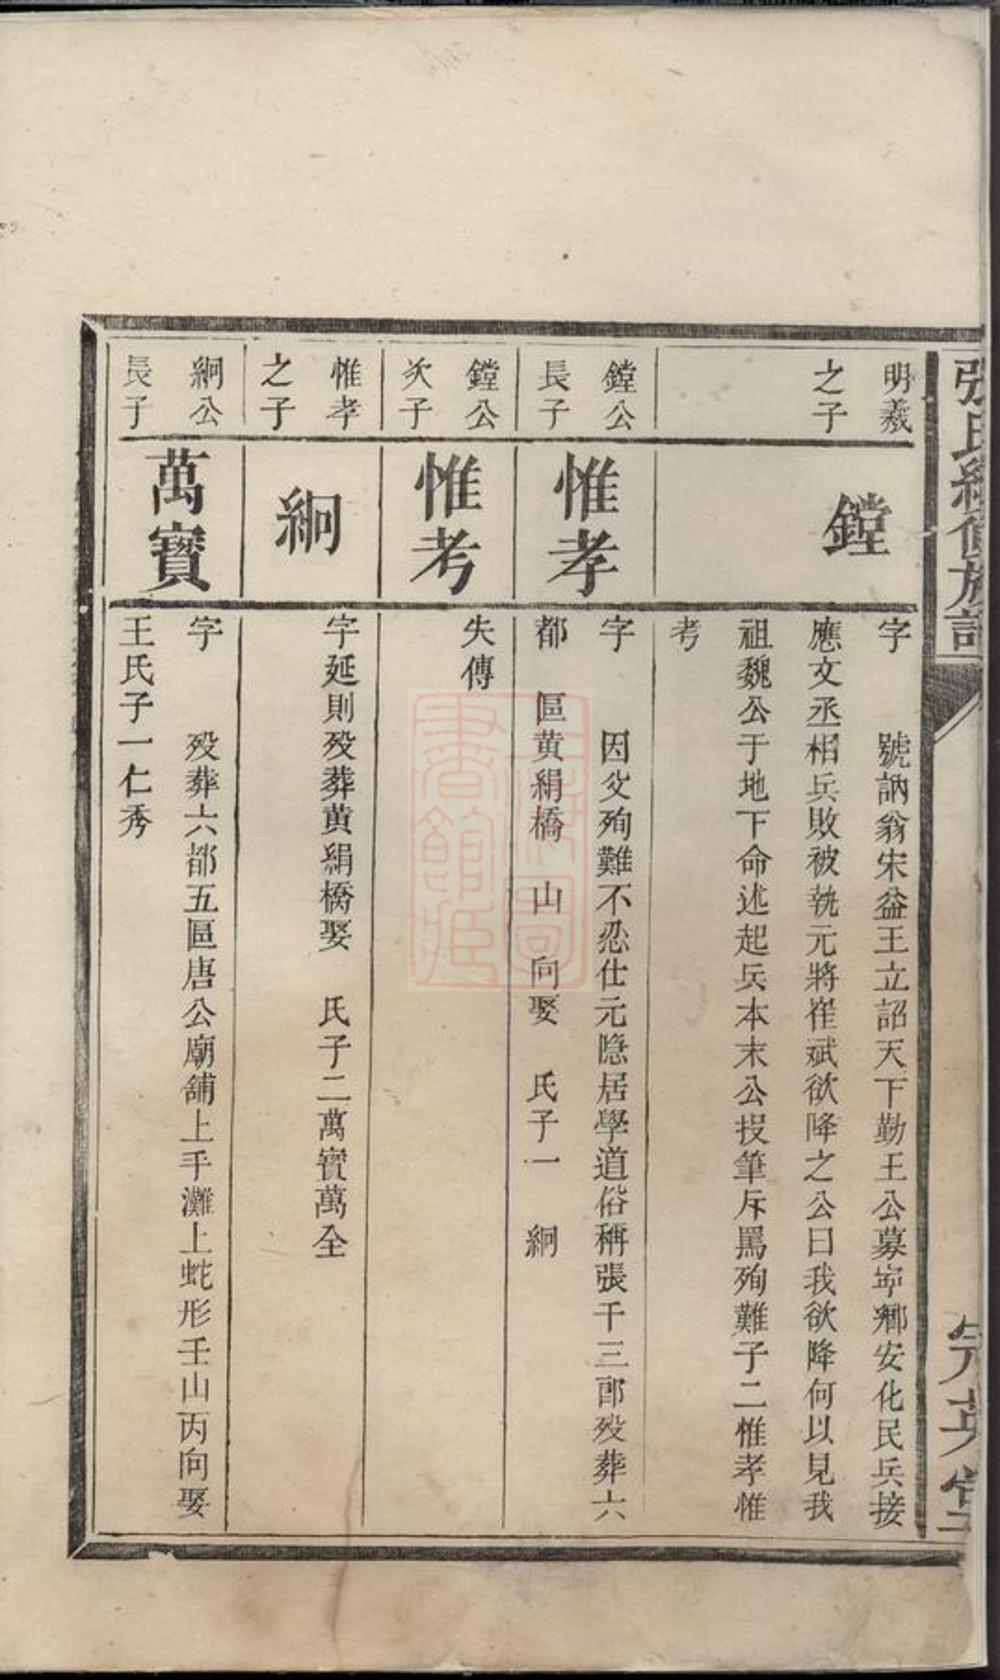 張氏續修族譜
明羲
之子
鏜
字　號訥翁宋益王立詔天下勤王公募寧鄉安化民兵接
應文丞相兵敗被執元將崔斌欲降之公曰我欲降何以見我
祖魏公于地下命述起兵本末公投筆斥罵殉難子二惟孝惟
考
鏜公
長子
惟孝
字　因父殉難不忍仕元隱居學道俗稱張千三郎歿葬六
都　區黃絹橋　山　向娶　氏子一　絅
鏜公
次子
惟考
失傳
惟孝
之子
絅
字延則歿葬黃絹橋娶　氏子二萬寳萬全
絅公
長子
萬寳
字　歿葬六都五區唐公廟舖上手灘上蛇形壬山丙向娶
王氏子一仁秀